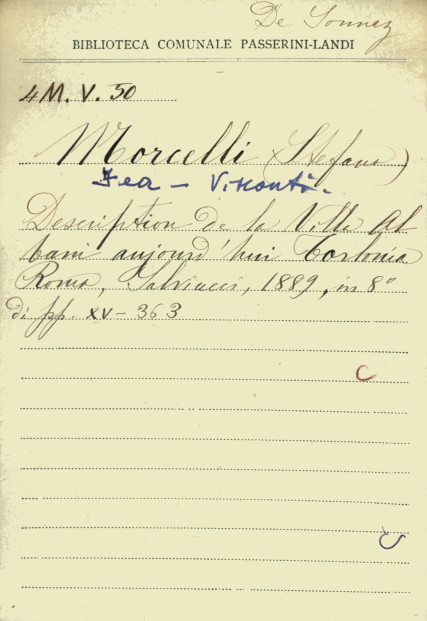 De Tonnez
BIBLIOTECA COMUNALE PASSERINI-LANDI
4 M. V. 50
Morcelli (Stefano)
Fea - Visconti.
Description de la Villa Al-
bani aujourd'hui Torlonia
Roma, Salviucci, 1889, in 8°
di pp. XV - 363
C
C